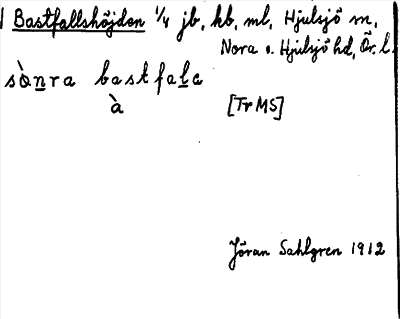 1 Bastfallshöjden 1/4 jb, hb, ml, Hjulsjö sn,
Nora o. Hjulsjö hd, Ör. l.
sò̀nra bastfala
à
[Tr MS]
Jöran Sahlgren 1912